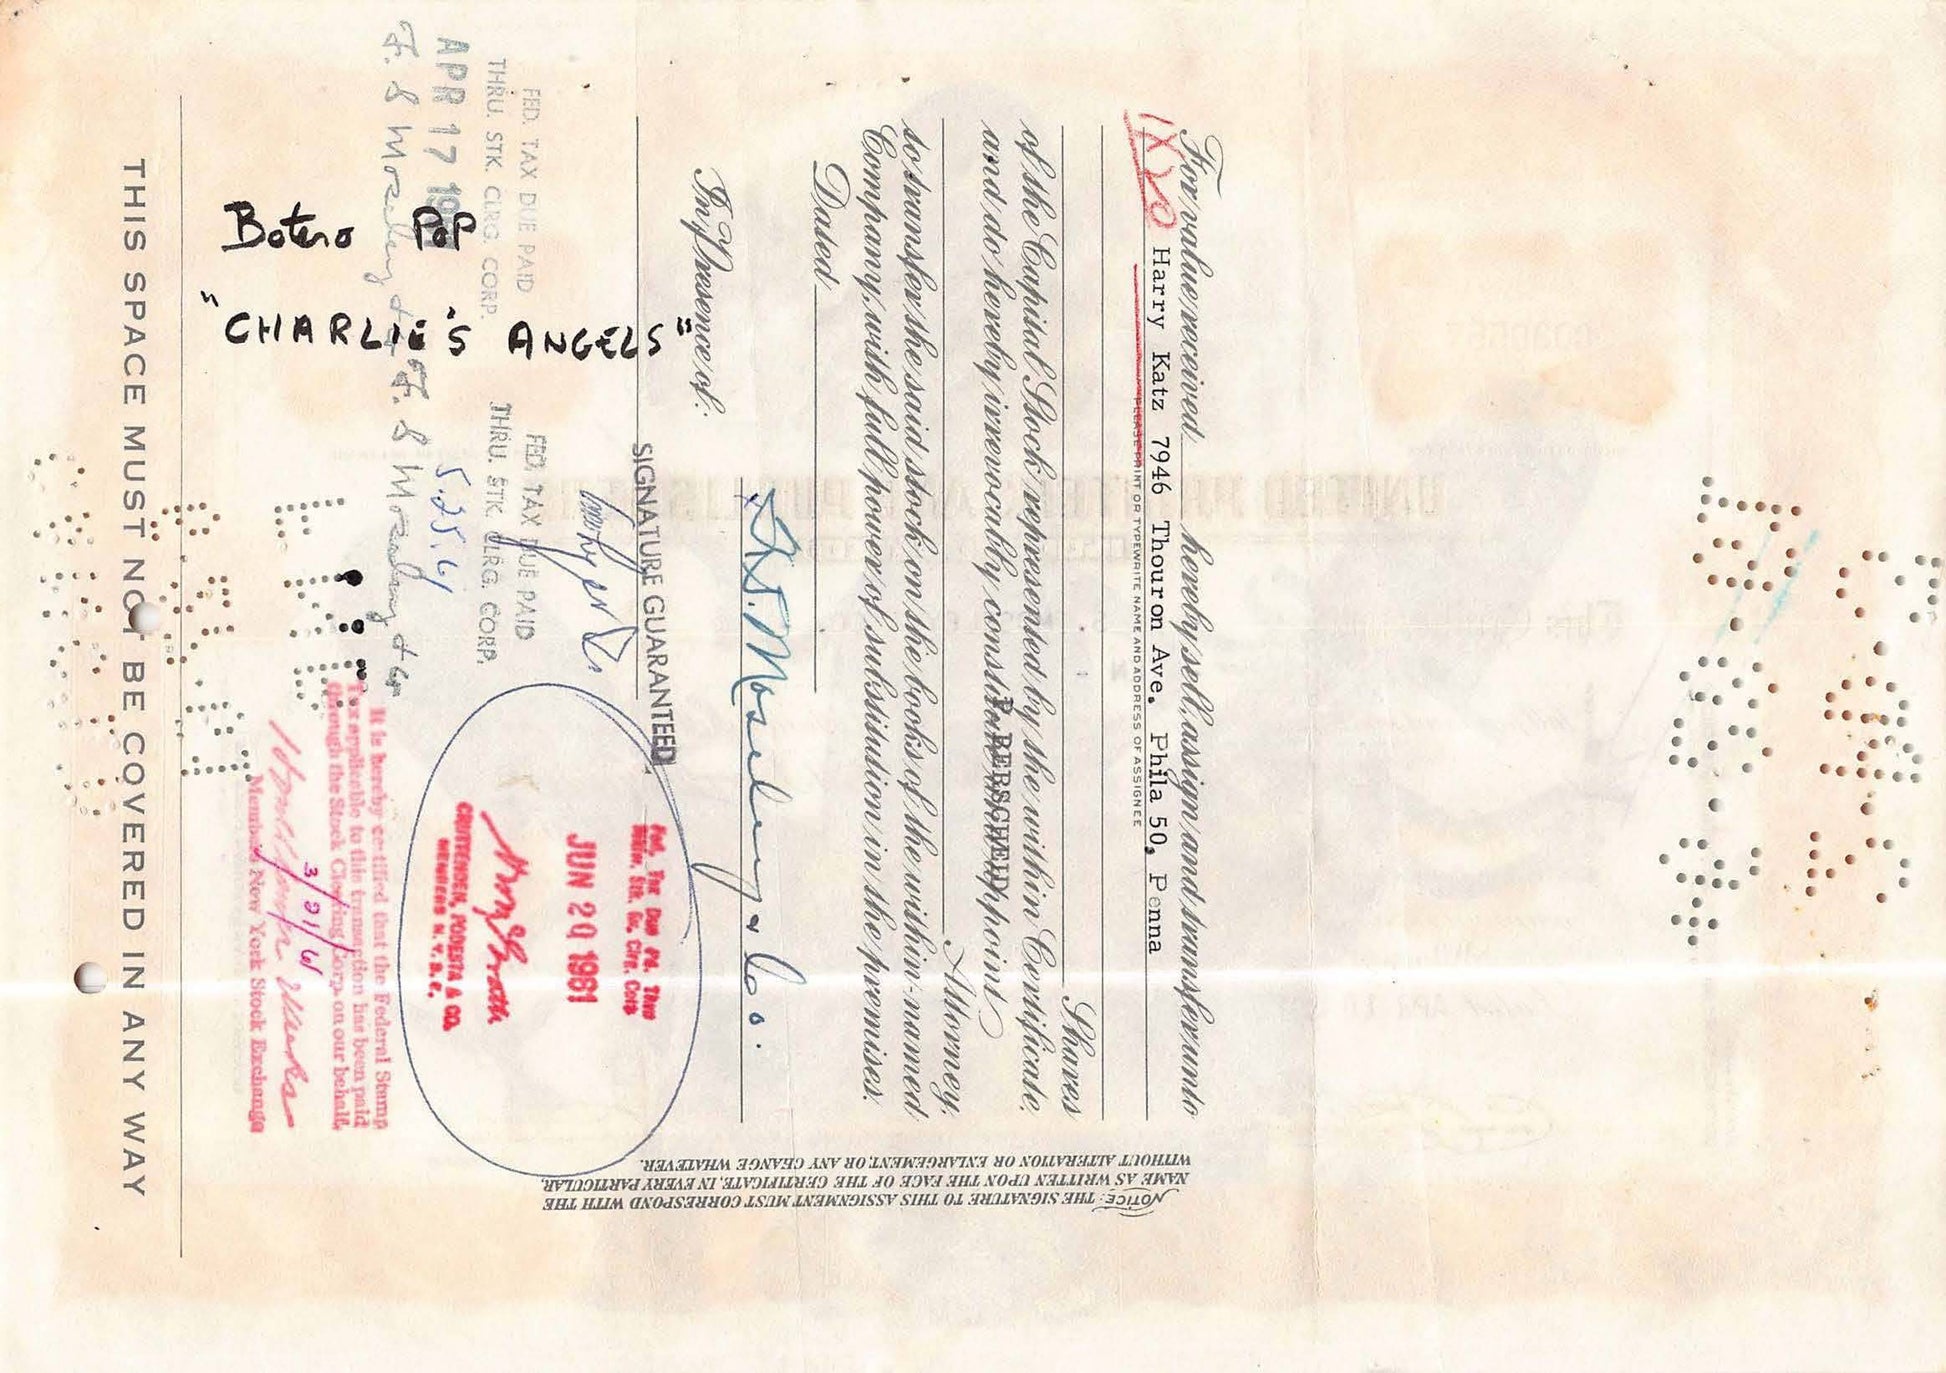 For value received hereby sell, assign and transfer unto
1X20 Harry Katz 7946 Thouron Ave. Phila 50, Penna
PLEASE PRINT OR TYPEWRITE NAME AND ADDRESS OF ASSIGNEE
Shares
of the Capital Stock represented by the within Certificate,
and do hereby irrevocably constitute and appoint
P. BERSCHEID
Attorney,
to transfer the said stock on the books of the within-named
Company, with full power of substitution in the premises.
Dated
In Presence of:
F. S. Moseley & Co.
SIGNATURE GUARANTEED
NOTICE: THE SIGNATURE TO THIS ASSIGNMENT MUST CORRESPOND WITH THE
NAME AS WRITTEN UPON THE FACE OF THE CERTIFICATE, IN EVERY PARTICULAR,
WITHOUT ALTERATION OR ENLARGEMENT, OR ANY CHANGE WHATEVER.
FED. TAX DUE PAID
THRU. STK. CLRG. CORP.
APR 17 19
F. S Moseley & Co
FED. TAX DUE PAID
THRU. STK. CLRG. CORP.
5.25.61
F. S Moseley & Co
Fed. Tax Due Pd. Thru
JUN 20 1961
CRUTTENDEN, PODESTA & CO.
MEMBERS N. Y. S. E.
It is hereby certified that the Federal Stamp
Tax applicable to this transaction has been paid
through the Stock Clearing Corp. on our behalf.
3/21/61
Members New York Stock Exchange
Botero POP
"CHARLIE'S ANGELS"
THIS SPACE MUST NOT BE COVERED IN ANY WAY